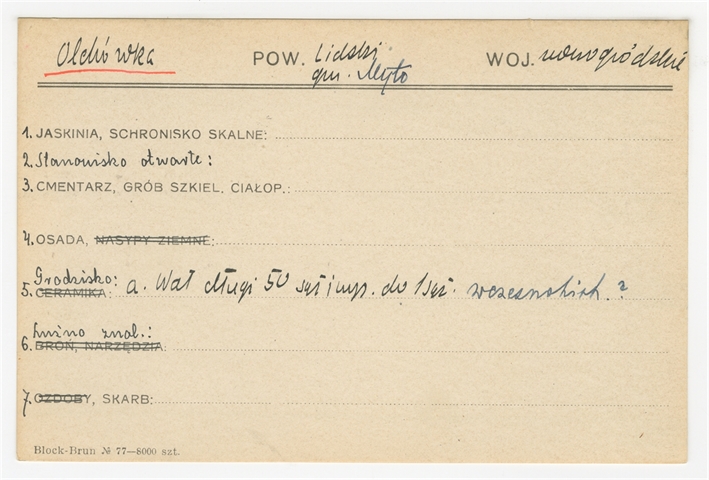 Olchówka POW. Lidski WOJ. nowogródzkie
gm. Myto
1. JASKINIA, SCHRONISKO SKALNE:
2. Stanowisko otwarte:
3. CMENTARZ, GRÓB SZKIEL. CIAŁOP.:
4. OSADA, NASYPY ZIEMNE:
Grodzisko:
5. CERAMIKA: a. Wał długi 50 sęż i wys. do 1 sęż. wczesnohist. ?
Luźno znal.:
6. BROŃ, NARZĘDZIA:
7. OZDOBY, SKARB:
Block-Brun № 77—8000 szt.